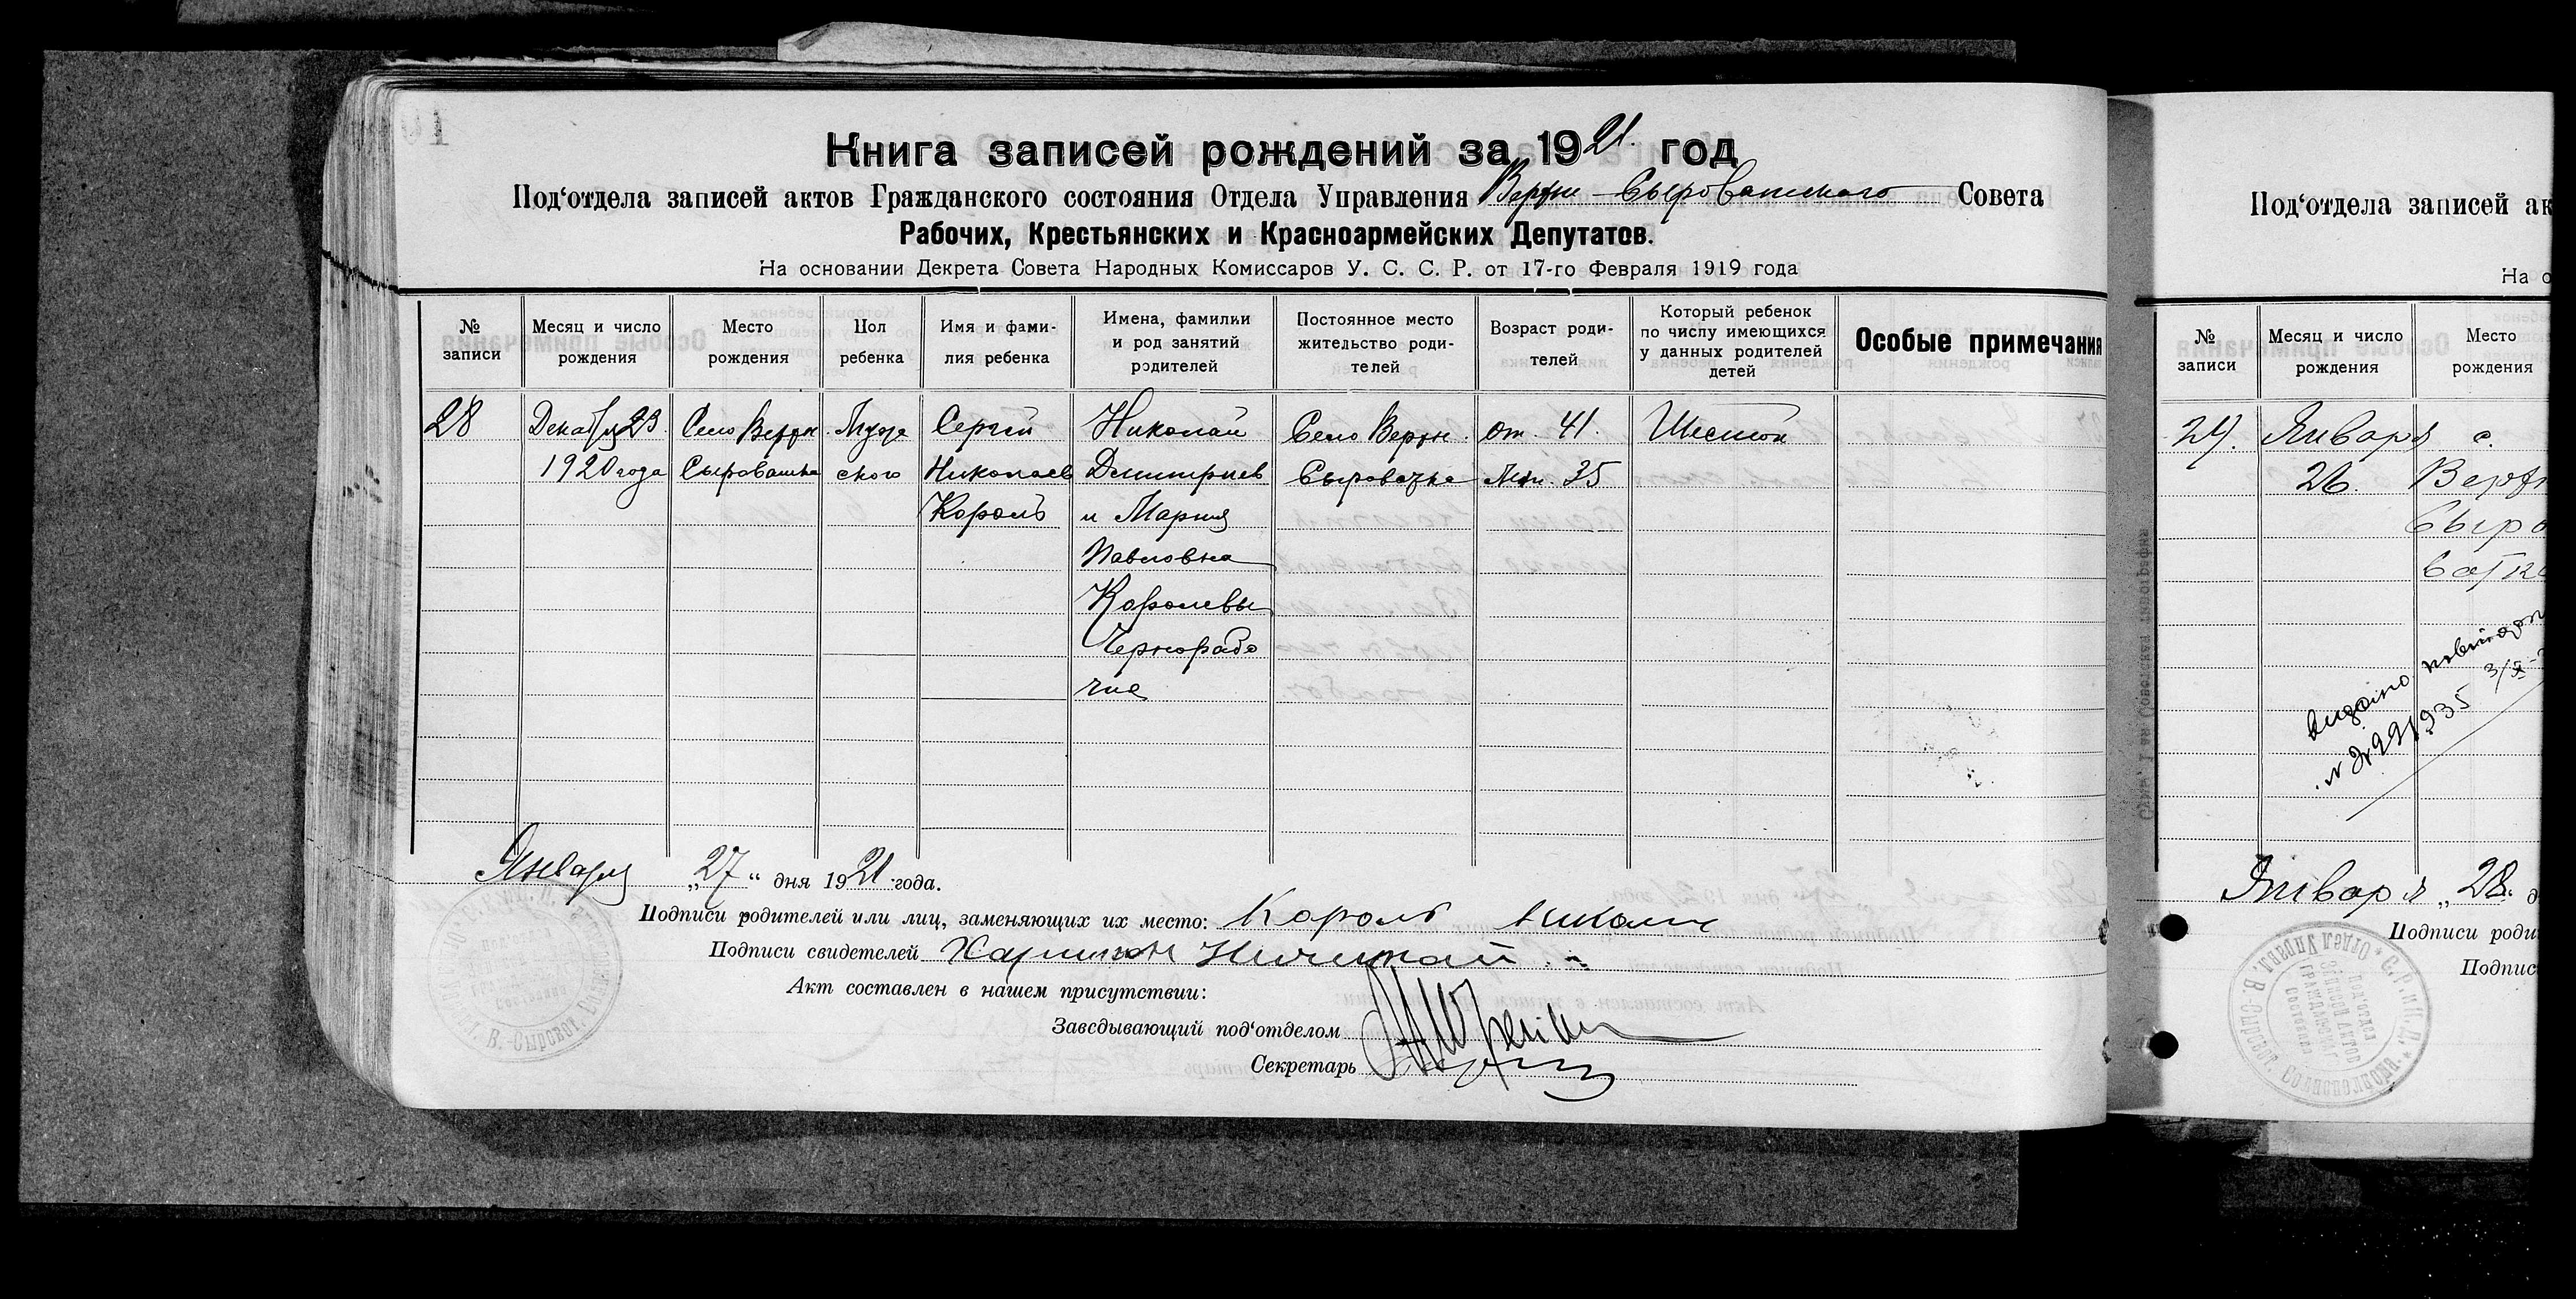 Книга записей рождений за 1921. год
Под'отдела записей актов Гражданского состояния Отдела Управления Верхн-Сыроватского Совета
Рабочих, Крестьянских и Красноармейских Депутатов.
На основании Декрета Совета Народных Комиссаров У. С. С. Р. от 17-го Февраля 1919 года
№ записи
Месяц и число рождения
Место рождения
Пол ребенка
Имя и фами-
лия ребенка
Имена, фамилии
и род занятий
родителей
Постоянное место
жительство роди-
телей
Возраст роди-
телей
Который ребенок
по числу имеющихся
у данных родителей
детей
Особые примечания
28
Декабря 23.
1920 года
Село Верхн.
Сыроватка
Муже
ского
Сергей
Николаев
Король
Николай
Дмитриев
и Мария
Павловна
Королевы
Чернорабо
чие
Село Верхн.
Сыроватка
от. 41.
мт. 35
Шестой
Января „27“ дня 1921 года.
Подписи родителей или лиц, заменяющих их место: Король Николай
Подписи свидетелей Харитон
Акт составлен в нашем присутствии:
Заведывающий под'отделом
Секретарь
В.-Сыроват.
Под'отдела записей ак
На о
№ записи
Месяц и число рождения
Место рождения
29.
Января
26.
с.
Верхн
Сыро
ватка
видано повторн
Января „28.
Подписи роди
Подпис